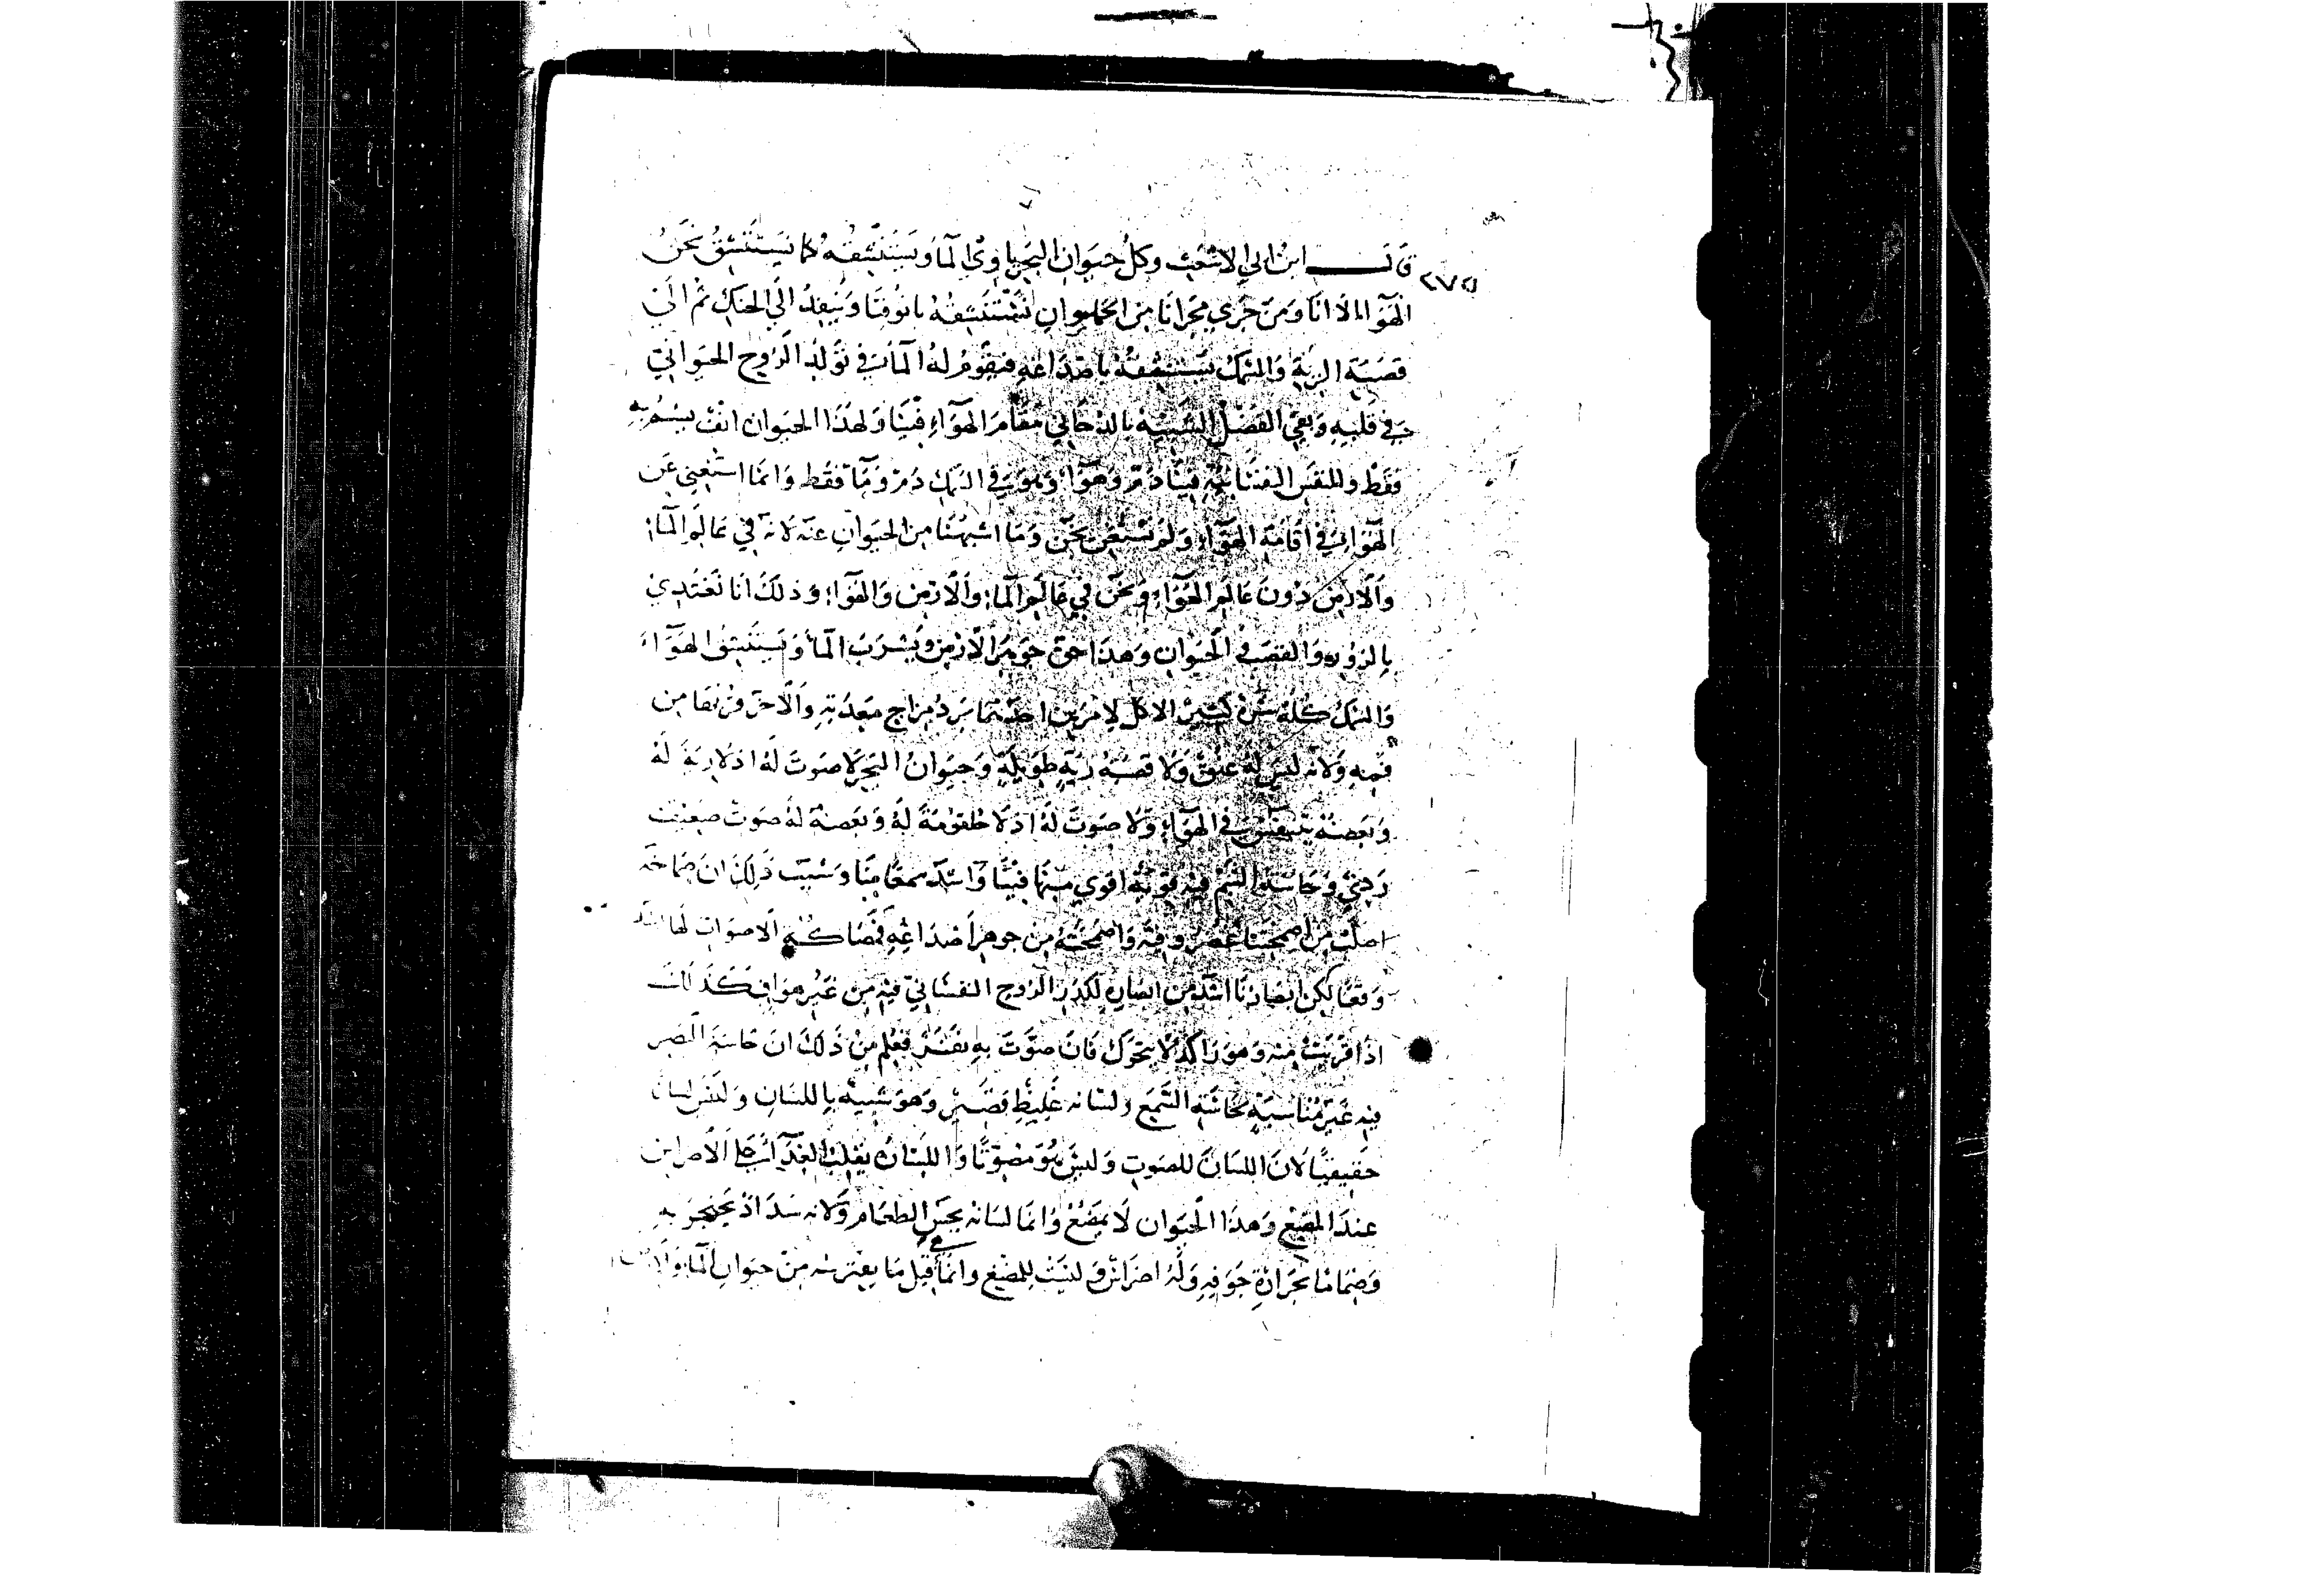 قال ابن ابي الاشعث وكل حيوان البحر ياوي الماء ويستنشقه كما نستنشق نحن
الهواء الا انا ومن جرى مجرانا من الحيوان نستنشقه بانوفنا وينفذ الى الحنك ثم الى
قصبة الرية والسمك يستنشقه باصداغه فيقوم له الماء في تولد الروح الحيواني
في قلبه وبقي الفضل الشبيه بالدخاني مقام الهواء فينا ولهذا الحيوان انف يشم به
فقط وللنفس فينا دم وهواء وهو في السمك دم وماء فقط وانما استغنى عن
الهواء في اقامة الهواء ولم نستغن نحن وما اشبهنا من الحيوان عنه لانه في عالم الماء
والارض دون عالم الهواء ونحن في عالم الماء والارض والهواء وذلك انا نغتدي
بالزروع والقصب في الحيوان وهذا جوهر الارض ونشرب الماء ونستنشق الهواء
والسمك كله شره كثير الاكل لامرين احدهما برد مزاج معدته والاخر قربها من
فمه ولانه ليس له عنق ولا قصبة رية طويلة وحيوان البحر لا صوت له اذ لا رية له
وبعضه يتنفس في الهواء ولا صوت له اذ لا حلقومة له وبعضه له صوت ضعيف
ردي وحاسة الشم فيه قوية اقوى منها فينا واشد سمعا منا وسبب ذلك ان صماخه
اصلب من اصمختنا واصمخته من جوهر اصداغه فصاكة الاصوات لها اشد
وقعا لكن ابصارنا اشد من ابصاره لكدر الروح النفساني فيه من غير هواء فكذلك
اذا قربت منه وهو راكد لا يتحرك فان صوت به نفر فعلم من ذلك ان حاسة البصر
فيه غير مناسبة لحاسة السمع ولسانه غليظ قصير وهو شبيه باللسان وليس لسانا
حقيقيا لان اللسان للصوت وليس هو مصوتا واللسان يقلب الغذاء على الاضراس
عند المضغ وهذا الحيوان لا يمضغ وانما لسانه يحبس الطعام ولانه سد اذ يحجز به
وضماما بحرارة جوفه وله اضراس وليست للمضغ وانما قيل ما يفترسه من حيوان الماء